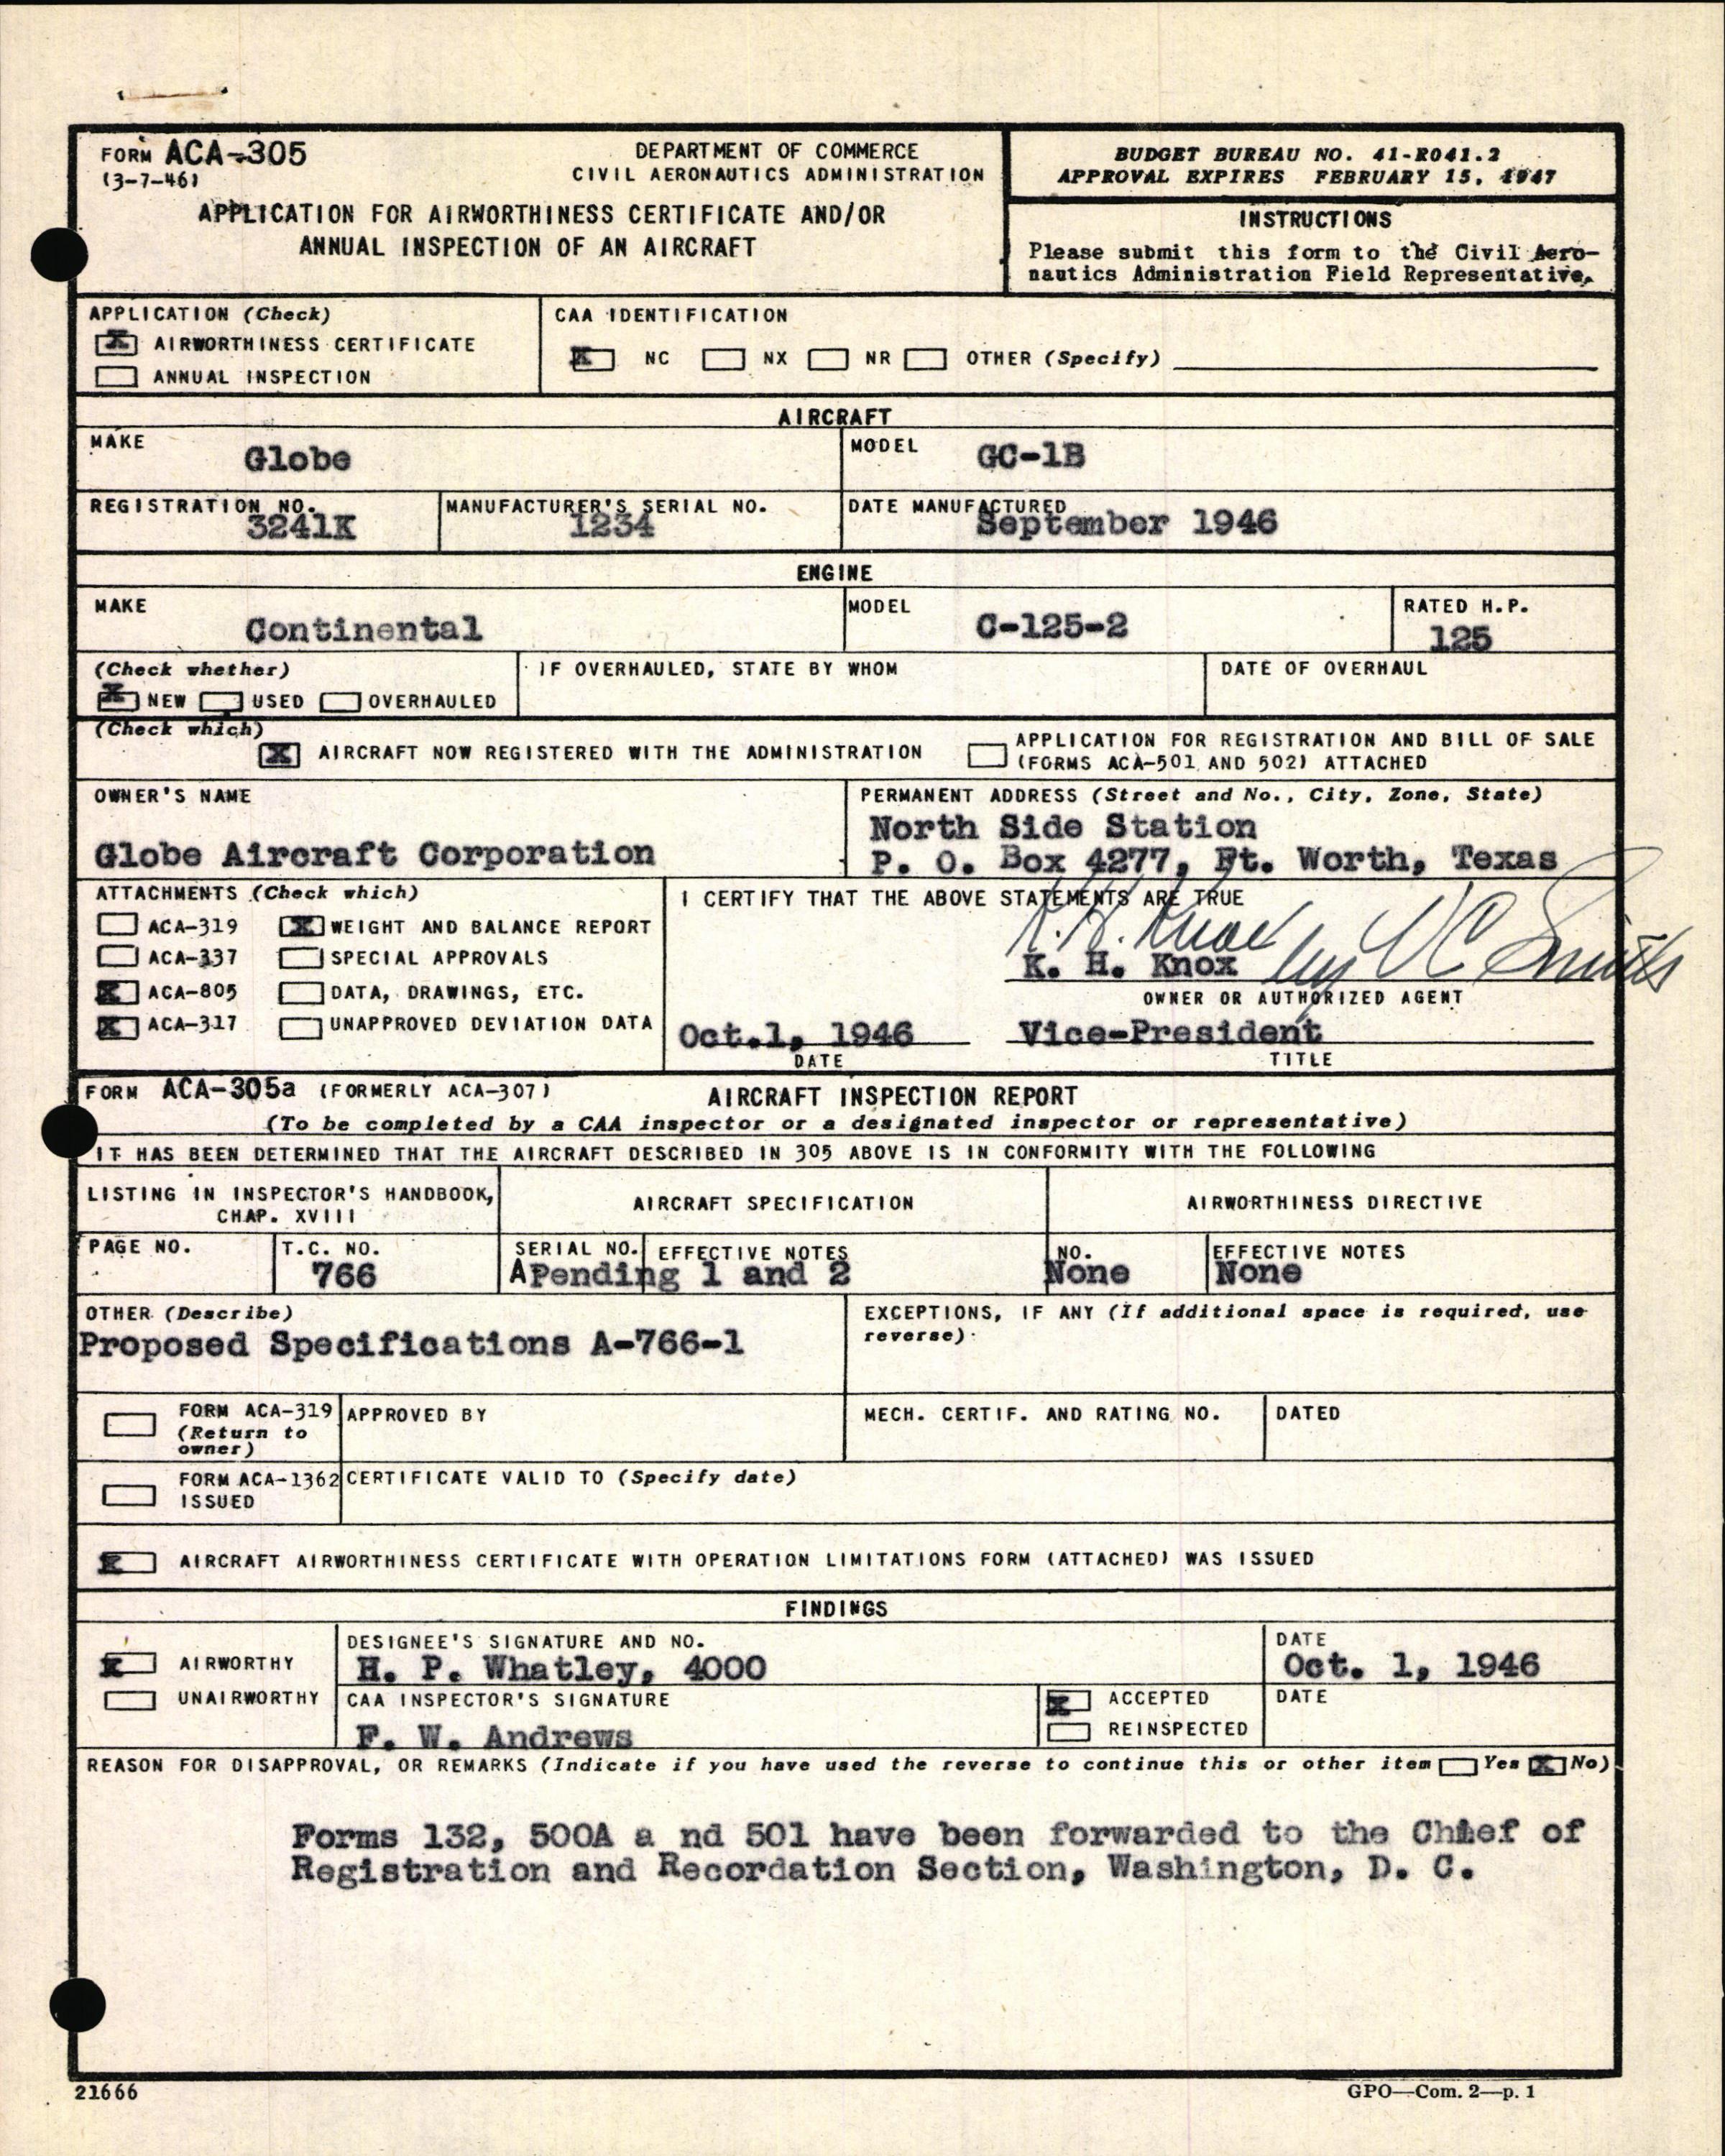 FORM ACA-305
(3-7-46)
DEPARTMENT OF COMMERCE
CIVIL AERONAUTICS ADMINISTRATION
APPLICATION FOR AIRWORTHINESS CERTIFICATE AND/OR
ANNUAL INSPECTION OF AN AIRCRAFT
BUDGET BUREAU NO. 41-R041.2
APPROVAL EXPIRES FEBRUARY 15, 1947
INSTRUCTIONS
Please submit this form to the Civil Aero-
nautics Administration Field Representative.
APPLICATION (Check)
X AIRWORTHINESS CERTIFICATE
ANNUAL INSPECTION
CAA IDENTIFICATION
X NC NX NR OTHER (Specify)
AIRCRAFT
MAKE
Globe
MODEL
GC-1B
REGISTRATION NO.
3241K
MANUFACTURER'S SERIAL NO.
1234
DATE MANUFACTURED
September 1946
ENGINE
MAKE
Continental
MODEL
C-125-2
RATED H.P.
125
(Check whether)
X NEW USED OVERHAULED
IF OVERHAULED, STATE BY WHOM
DATE OF OVERHAUL
(Check which)
X AIRCRAFT NOW REGISTERED WITH THE ADMINISTRATION
APPLICATION FOR REGISTRATION AND BILL OF SALE
(FORMS ACA-501 AND 502) ATTACHED
OWNER'S NAME
Globe Aircraft Corporation
PERMANENT ADDRESS (Street and No., City, Zone, State)
North Side Station
P. O. Box 4277, Ft. Worth, Texas
ATTACHMENTS (Check which)
ACA-319 X WEIGHT AND BALANCE REPORT
ACA-337 SPECIAL APPROVALS
X ACA-805 DATA, DRAWINGS, ETC.
X ACA-317 UNAPPROVED DEVIATION DATA
I CERTIFY THAT THE ABOVE STATEMENTS ARE TRUE
K. H. Knox by V C Smith
K. H. Knox
OWNER OR AUTHORIZED AGENT
Oct.1, 1946 Vice-President
DATE TITLE
FORM ACA-305a (FORMERLY ACA-307) AIRCRAFT INSPECTION REPORT
(To be completed by a CAA inspector or a designated inspector or representative)
IT HAS BEEN DETERMINED THAT THE AIRCRAFT DESCRIBED IN 305 ABOVE IS IN CONFORMITY WITH THE FOLLOWING
LISTING IN INSPECTOR'S HANDBOOK,
CHAP. XVIII
AIRCRAFT SPECIFICATION
AIRWORTHINESS DIRECTIVE
PAGE NO.
T.C. NO.
766
SERIAL NO. EFFECTIVE NOTES
APending 1 and 2
NO.
None
EFFECTIVE NOTES
None
OTHER (Describe)
Proposed Specifications A-766-1
EXCEPTIONS, IF ANY (If additional space is required, use
reverse)
FORM ACA-319
(Return to
owner)
APPROVED BY
MECH. CERTIF. AND RATING NO.
DATED
FORM ACA-1362
ISSUED
CERTIFICATE VALID TO (Specify date)
X AIRCRAFT AIRWORTHINESS CERTIFICATE WITH OPERATION LIMITATIONS FORM (ATTACHED) WAS ISSUED
FINDINGS
X AIRWORTHY
UNAIRWORTHY
DESIGNEE'S SIGNATURE AND NO.
H. P. Whatley, 4000
DATE
Oct. 1, 1946
CAA INSPECTOR'S SIGNATURE
F. W. Andrews
X ACCEPTED
REINSPECTED
DATE
REASON FOR DISAPPROVAL, OR REMARKS (Indicate if you have used the reverse to continue this or other item Yes X No)
Forms 132, 500A a nd 501 have been forwarded to the Chief of
Registration and Recordation Section, Washington, D. C.
21666
GPO—Com. 2—p. 1